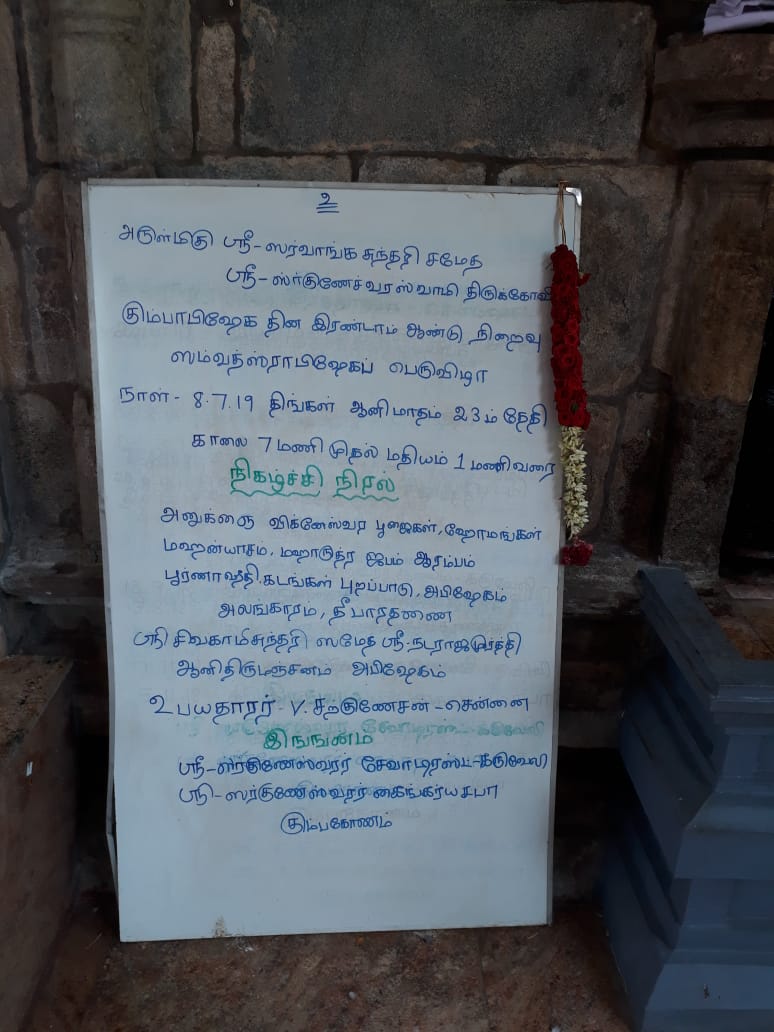 உ
அருள்மிகு ஸ்ரீ-ஸர்வாங்க சுந்தரி சமேத
ஸ்ரீ-ஸர்குணேச்வரஸ்வாமி திருக்கோவி
கும்பாபிஷேக தின இரண்டாம் ஆண்டு நிறைவு
ஸம்வத்ஸராபிஷேகப் பெருவிழா
நாள்- 8.7.19 திங்கள் ஆனிமாதம் 23ம் தேதி
காலை 7மணி முதல் மதியம் 1மணிவரை
நிகழ்ச்சி நிரல்
அனுக்ஞை விக்னேஸ்வர பூஜைகள், ஹோமங்கள்
மஹன்யாசம், மஹாருத்ர ஜபம் ஆரம்பம்
பூர்ணாஹீதி, கடங்கள் புறப்பாடு, அபிஷேகம்
அலங்காரம், தீபாரதணை
ஸ்ரீ சிவகாமிசுந்தரி ஸமேத ஸ்ரீ-நடராஜமூர்த்தி
ஆனிதிருமஞ்சனம் அபிஷேகம்
உபயதாரர் - V. சற்குணேசன் - சென்னை
இங்ஙனம்
ஸ்ரீ-ஸர்குணேஸ்வரர் சேவாடிரஸ்ட்-கருவேலி
ஸ்ரீ-ஸர்குணேஸ்வரர் கைங்கர்யசபா
கும்பகோணம்